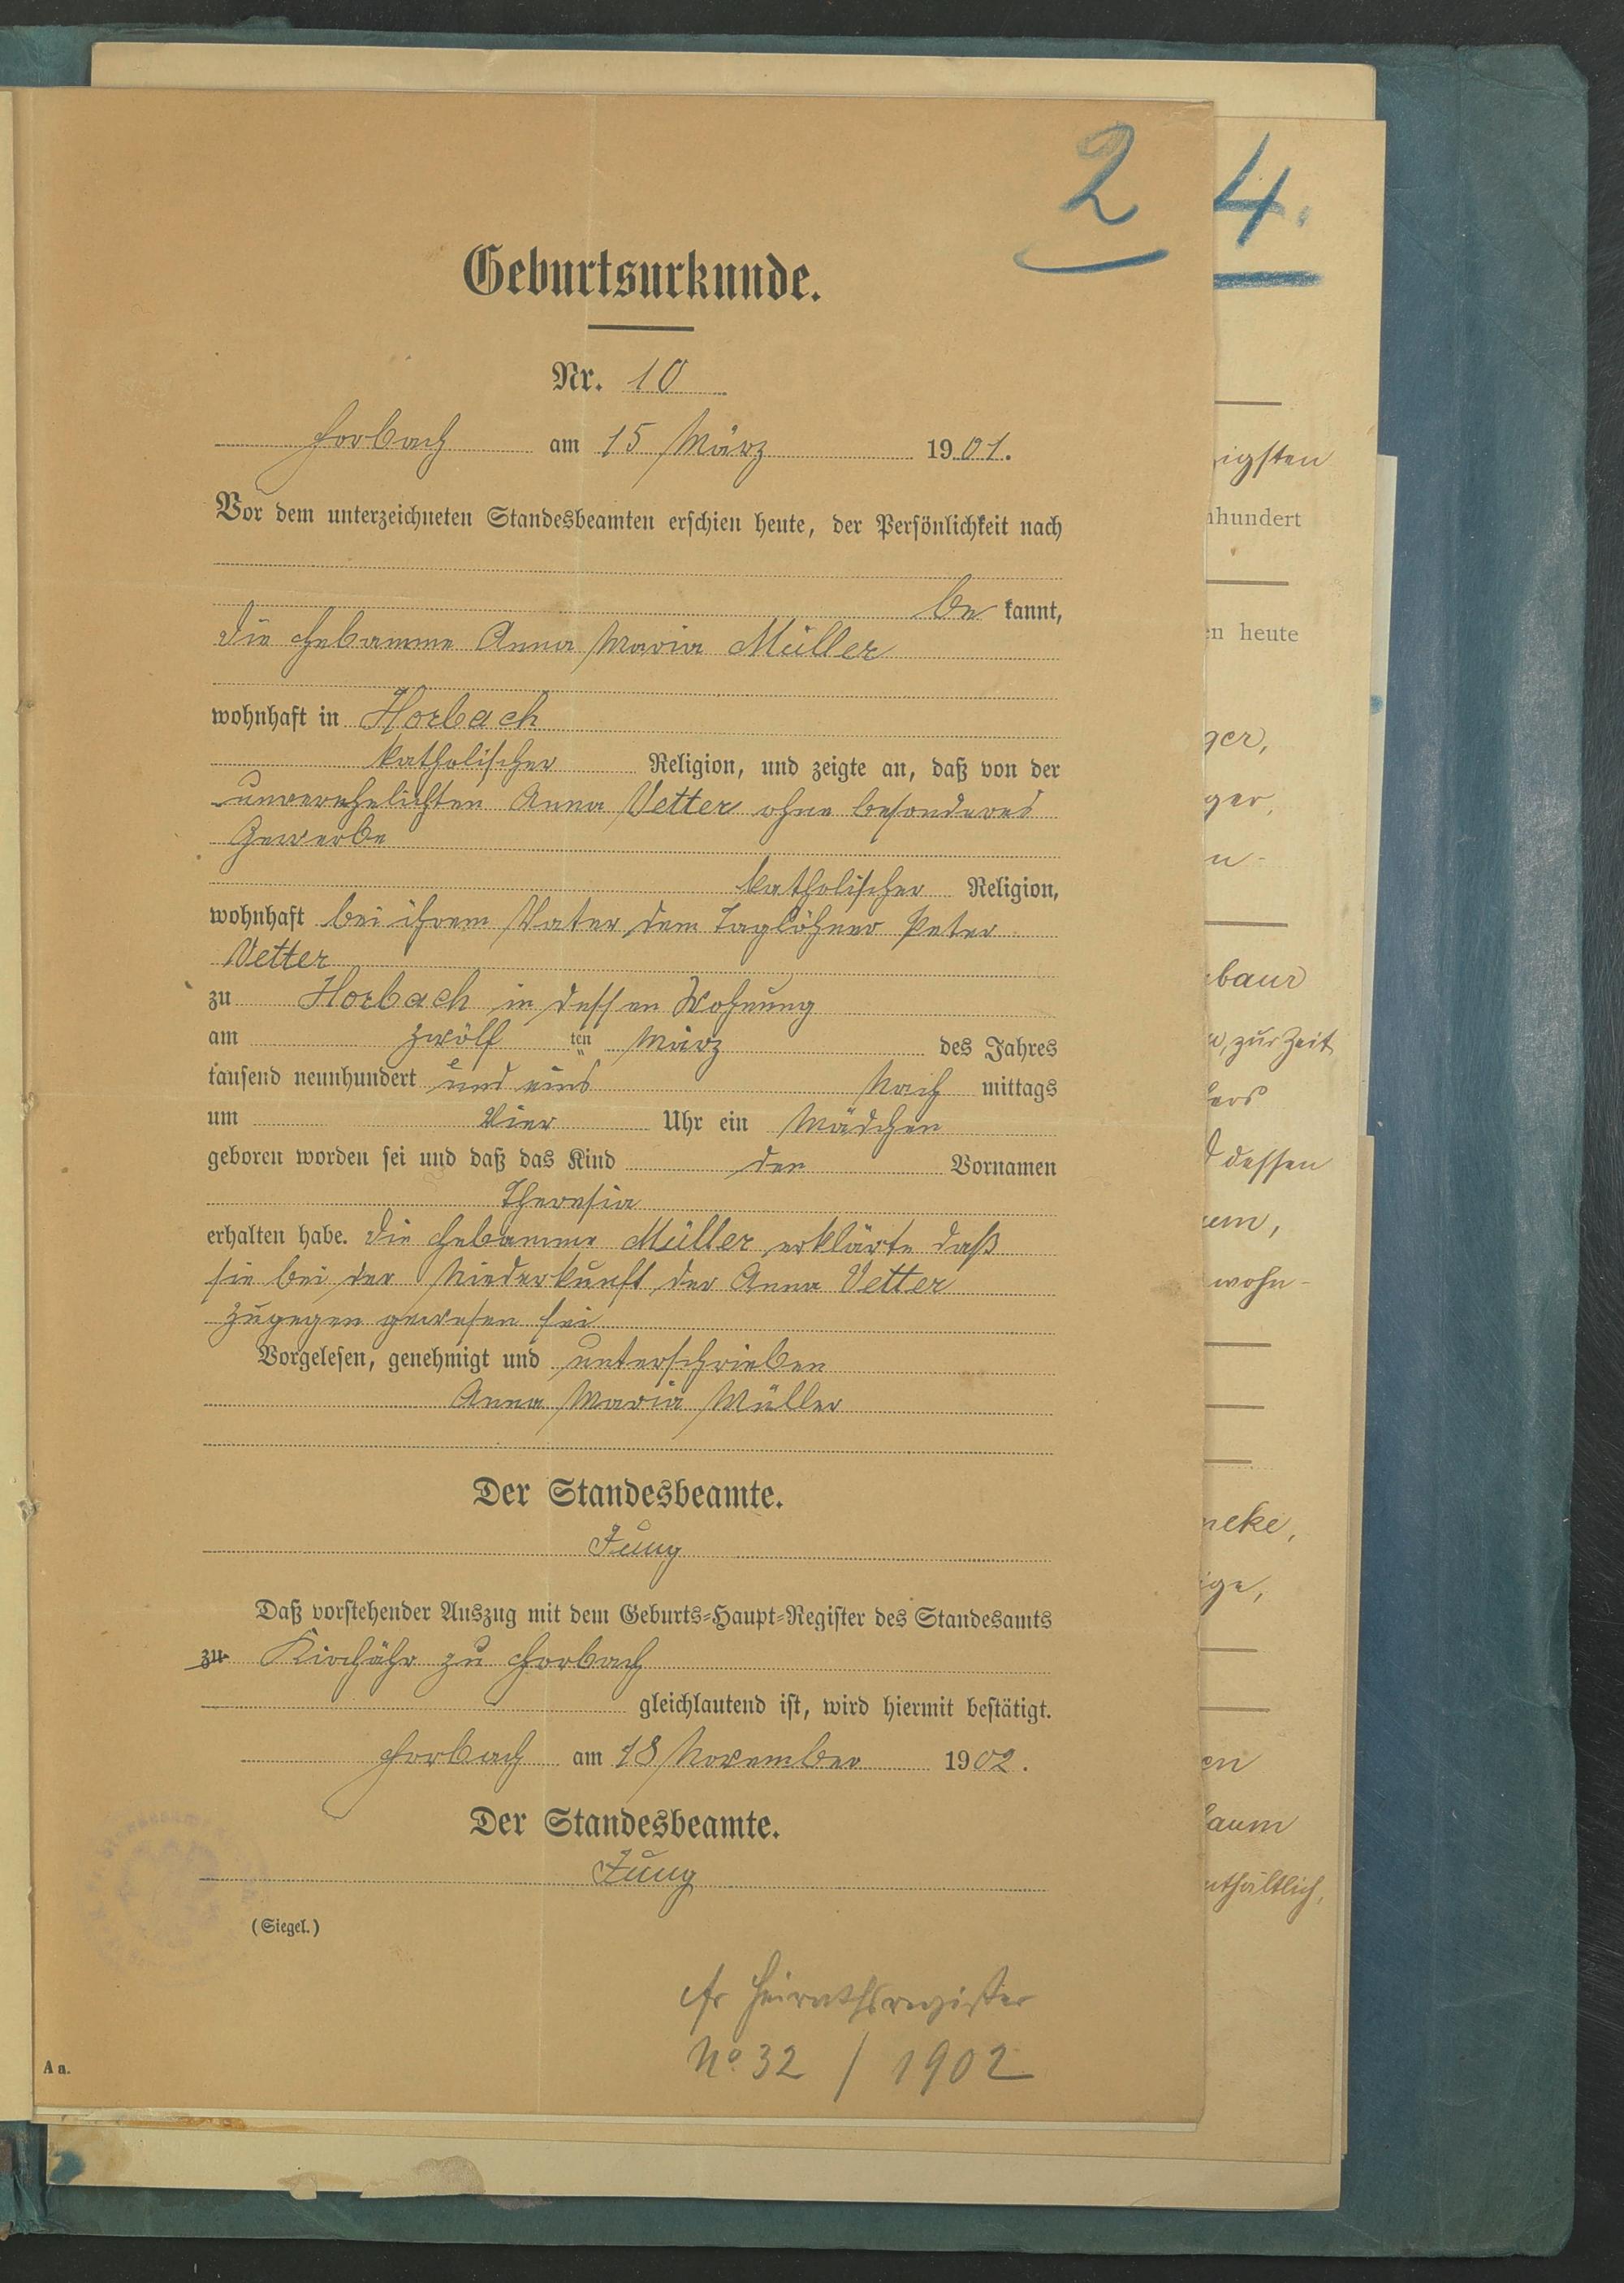 2
4.
Geburtsurkunde.
Nr. 10
Horbach am 15 März 1901.
Vor dem unterzeichneten Standesbeamten erschien heute, der Persönlichkeit nach
be kannt,
die Hebamme Anna Maria Müller
wohnhaft in Horbach
katholischer Religion, und zeigte an, daß von der
unverehelichten Anna Vetter ohne besonderes
Gewerbe
katholischer Religion,
wohnhaft bei ihrem Vater dem Taglöhner Peter
Vetter
zu Horbach in dessen Wohnung
am zwölf ten März des Jahres
tausend neunhundert und eins Nach mittags
um Vier Uhr ein Mädchen
geboren worden sei und daß das Kind den Vornamen
Theresia
erhalten habe. Die Hebamme Müller erklärte daß
sie bei der Niederkunft der Anna Vetter
zugegen gewesen sei
Vorgelesen, genehmigt und unterschrieben
Anna Maria Müller
Der Standesbeamte.
Jung
Daß vorstehender Auszug mit dem Geburts-Haupt-Register des Standesamts
zu Kirchähr zu Horbach
gleichlautend ist, wird hiermit bestätigt.
Horbach am 18 November 1902.
Der Standesbeamte.
Jung
(Siegel.)
cfr Heirathsregister
No 32 / 1902
A a.
igsten
hundert
en heute
ger,
ger,
n-
baur
zur Zeit
dessen
em,
wohn-
neke,
ige,
en
baum